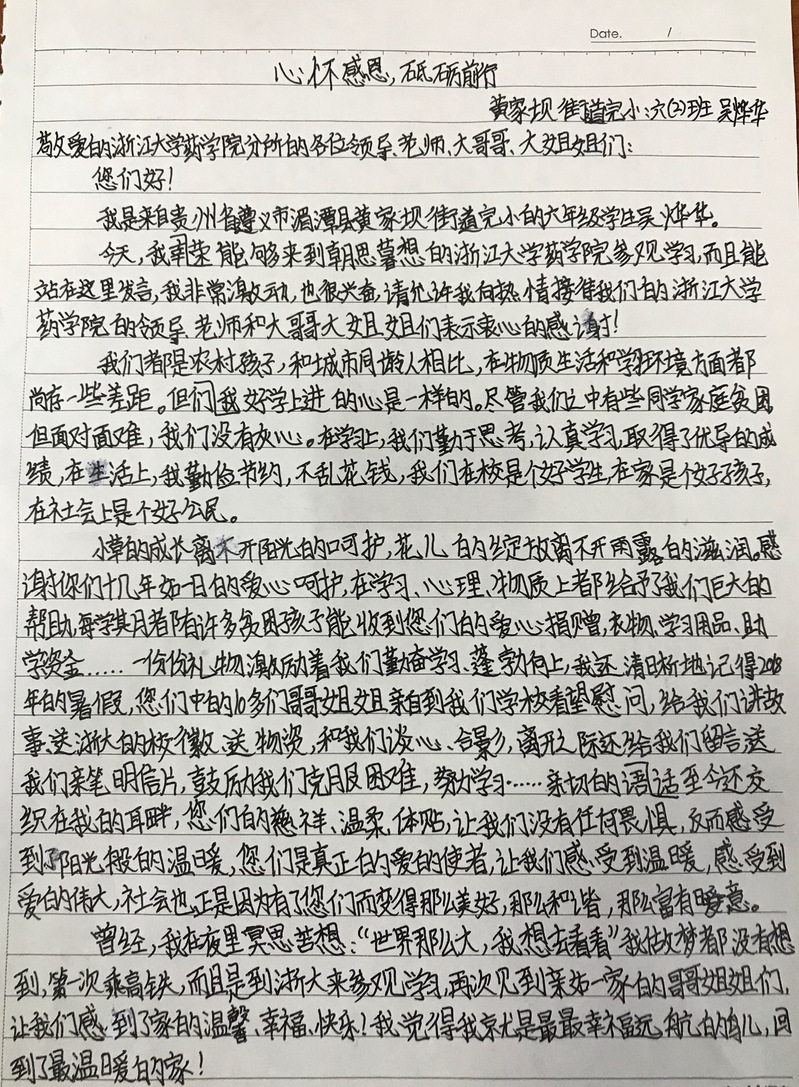 Date. /
心怀感恩,砥砺前行
黄家坝街道完小:六(2)班 吴烨华
敬爱的浙江大学药学院分所的各位领导、老师、大哥哥、大姐姐们:
您们好!
我是来自贵州省遵义市湄潭县黄家坝街道完小的六年级学生吴烨华。
今天,我很荣能够来到朝思暮想的浙江大学药学院参观学习,而且能
站在这里发言,我非常激动,也很兴奋,请允许我向热情接待我们的浙江大学
药学院的领导、老师和大哥哥大姐姐们表示衷心的感谢!
我们都是农村孩子,和城市同龄人相比,在物质生活和学习环境方面都
尚存一些差距。但们我好学上进的心是一样的。尽管我们之中有些同学家庭贫困,
但面对面难,我们没有灰心。在学习上,我们勤于思考,认真学习,取得了优导的成
绩,在生活上,我勤俭节约,不乱花钱,我们在校是个好学生,在家是个好孩子,
在社会上是个好公民。
小草的成长离不开阳光的呵护,花儿的绽放离不开雨露的滋润。感
谢你们十几年如一日的爱心呵护,在学习、心理、物质上都给予了我们巨大的
帮助,每学期都有许多贫困孩子能收到您们的爱心捐赠,衣物、学习用品、助
学资金……一份份礼物激励着我们勤奋学习、蓬勃向上,我还清晰地记得2018
年的暑假,您们中的10多们哥哥姐姐亲自到我们学校看望慰问,给我们讲故
事、送浙大的校徽、送物资,和我们谈心、合影,离开之际还给我们留言、送
我们亲笔明信片,鼓励我们克服困难,努力学习……亲切的语话至今还交
织在我的耳畔,您们的慈祥、温柔、体贴,让我们没有任何畏惧,反而感受
到了阳光般的温暖,您们是真正的爱的使者,让我们感受到温暖,感受到
爱的伟大,社会也正是因为有了您们而变得那么美好,那么和谐,那么富有暖意。
曾经,我在夜里冥思苦想:“世界那么大,我想去看看”我做梦都没有想
到,第一次乘高铁,而且是到浙大来参观学习,再次见到亲如一家的哥哥姐姐们,
让我们感到了家的温馨、幸福、快乐!我觉得我就是最最幸福远航的鸟儿,回
到了最温暖的家!